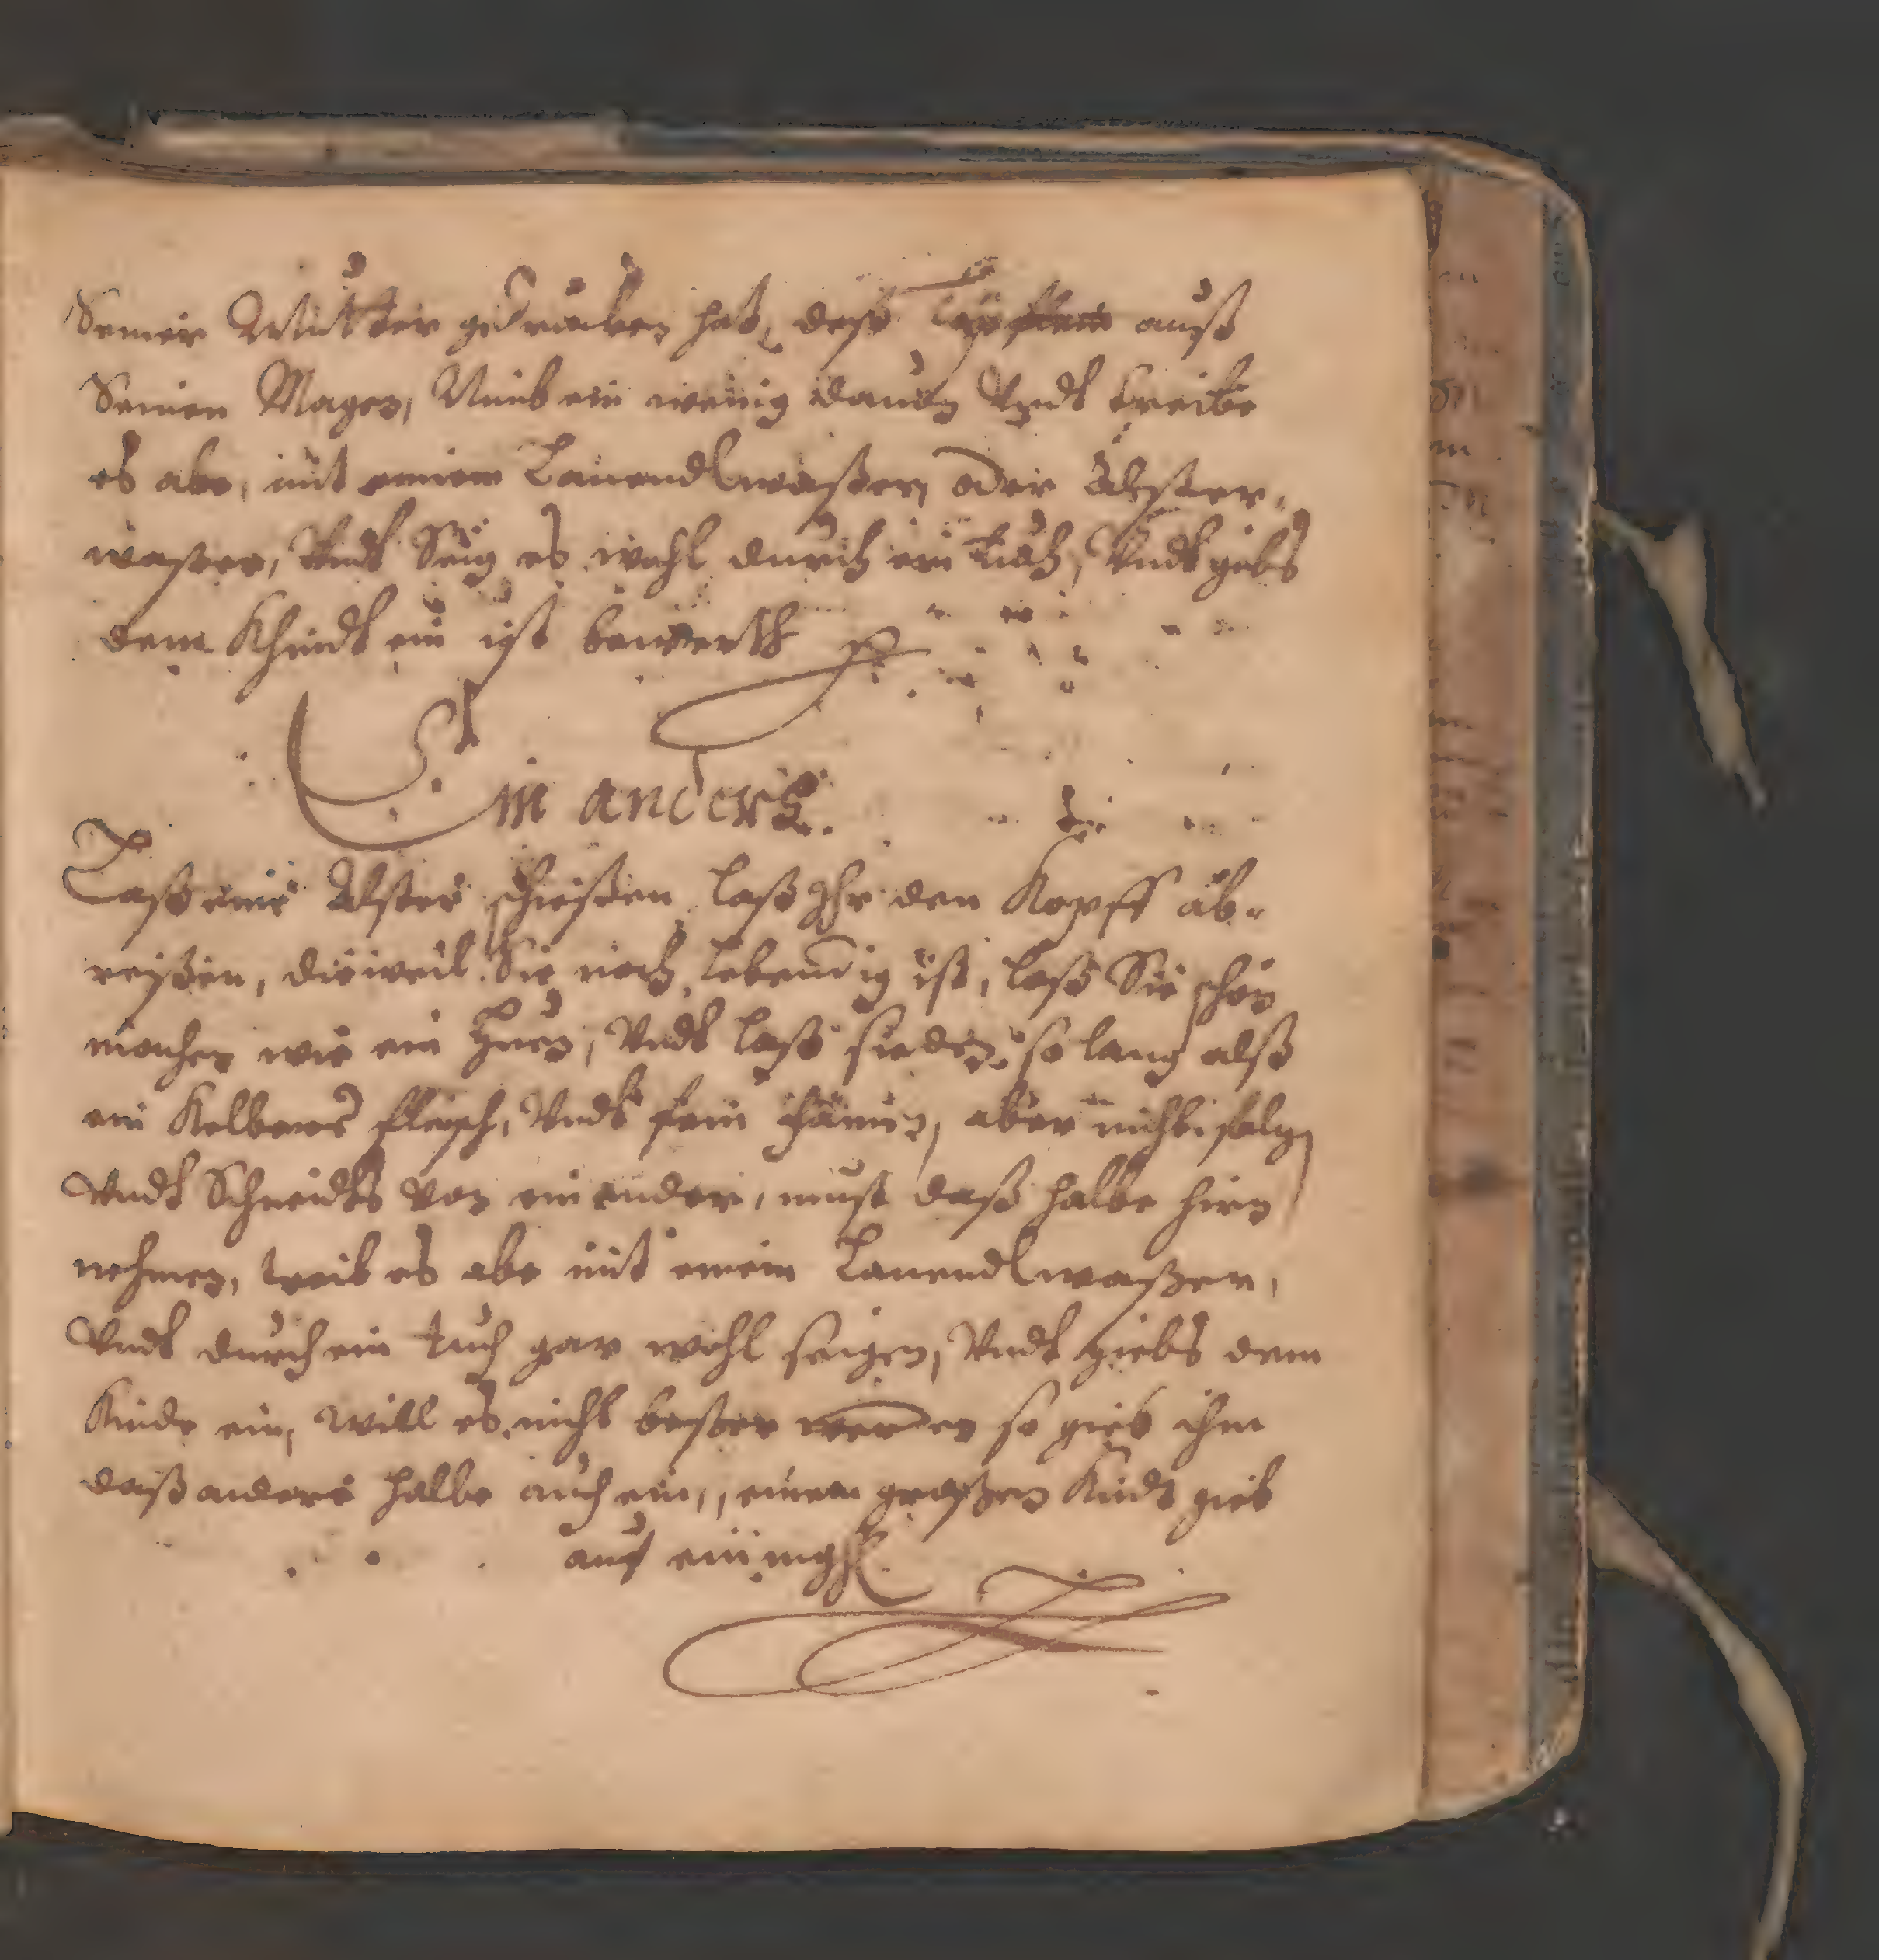 Seiner Mutter gedruncken hat, deß auß
Seinen Magen, Nimb ein wenig dauon Vndt treibe
es abe, mit einem Lauendlwaßer, oder Alster-
waßer, Vndt Seig es wohl durch ein tuch, Vndt gibs
dem Khindt ein ist bewerth
Ein anders.
Laß eine Alster schießen, laß Ihr den Kopff ab-
reißen, dieweil Sie noch lebendig ist, laß Sie schön
machen wie ein Huen, Vndt laß sieden so lang alß
ein Kelberes fleisch, Vndt fein faimen, aber nicht salzen
Vndt Schneidts von einander, must daß halbe hirn
nehmen, treib es abe mit einem Lauendlwaßer,
Vndt durch ein tuch gar wohl seigen, Vndt giebs dem
Kinde ein, will es nicht beßer werden so gieb ihm
daß andere halbe auch ein, einem großen Kindt gieb
auf ein mahl